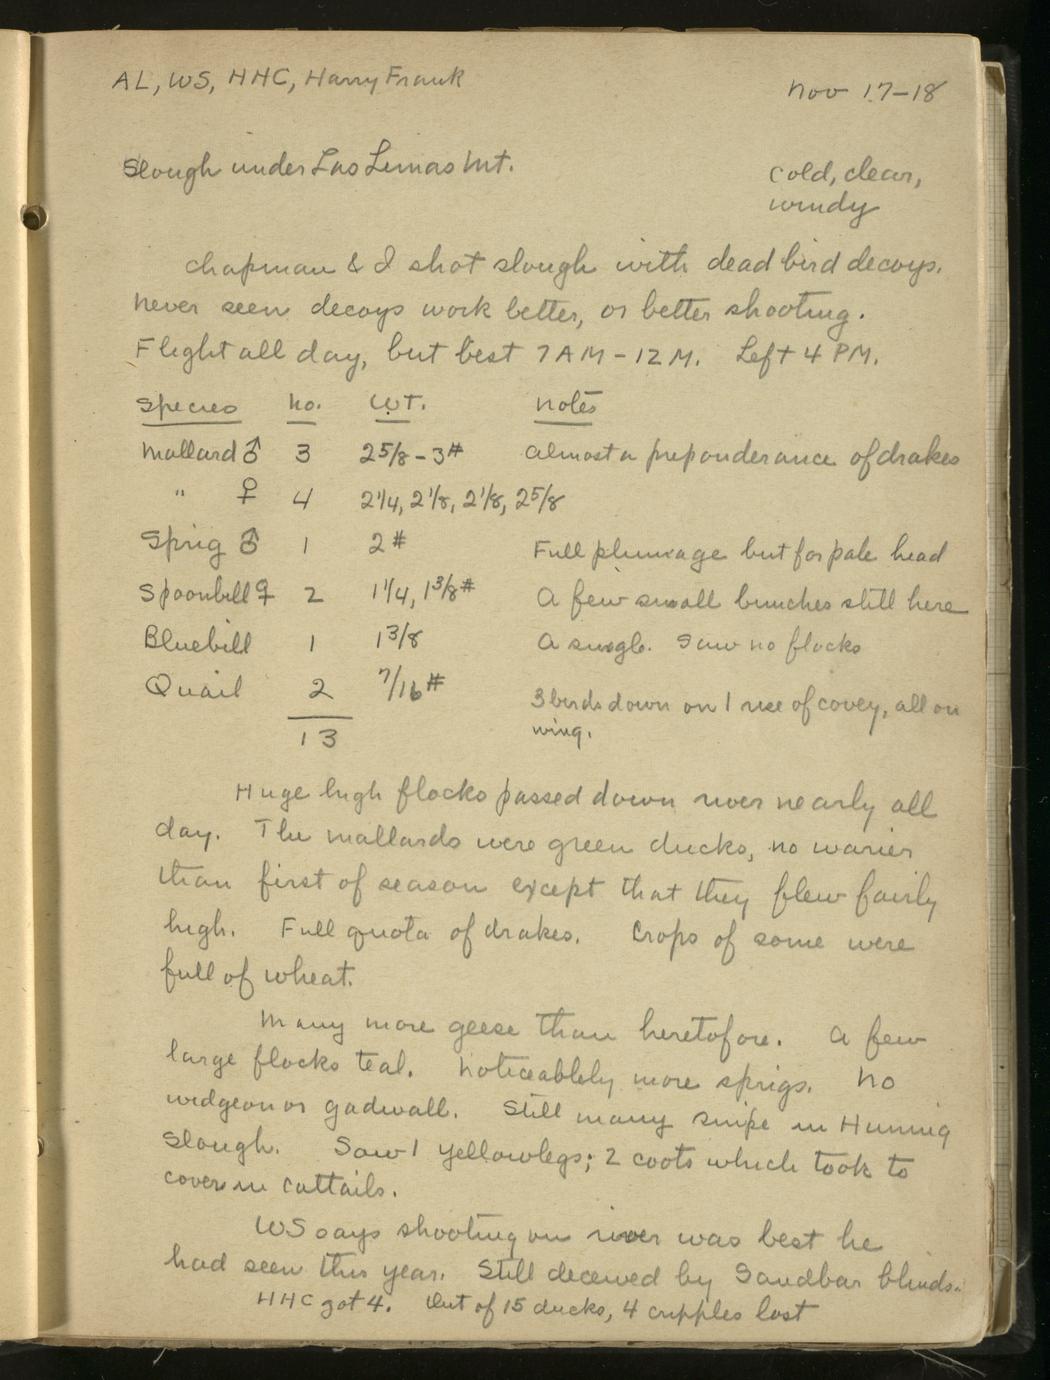 AL, WS, HHC, Harry Frank
Nov 17-18
Slough under Los Lunas Mt.
cold, clear,
windy
Chapman & I shot slough with dead bird decoys.
Never seen decoys work better, or better shooting.
Flight all day, but best 7 AM - 12 M. Left 4 PM.
Species no. WT. notes
Mallard ♂ 3 2 5/8 - 3# almost a preponderance of drakes
" ♀ 4 2 1/4, 2 1/8, 2 1/8, 2 5/8
Sprig ♂ 1 2# Full plumage but for pale head
Spoonbill ♀ 2 1 1/4, 1 3/8# A few small bunches still here
Bluebill 1 1 3/8 A single. Saw no flocks
Quail 2 7/16# 3 birds down on 1 rise of covey, all on
wing.
13
Huge high flocks passed down river nearly all
day. The mallards were green ducks, no warier
than first of season except that they flew fairly
high. Full quota of drakes. Crops of some were
full of wheat.
Many more geese than heretofore. A few
large flocks teal. Noticeablely more sprigs. No
widgeon or gadwall. Still many snipe in Hunnig
Slough. Saw 1 yellowlegs; 2 coots which took to
cover in cattails.
WS says shooting on river was best he
had seen this year. Still deceived by Sandbar blinds.
HHC got 4. Out of 15 ducks, 4 cripples lost